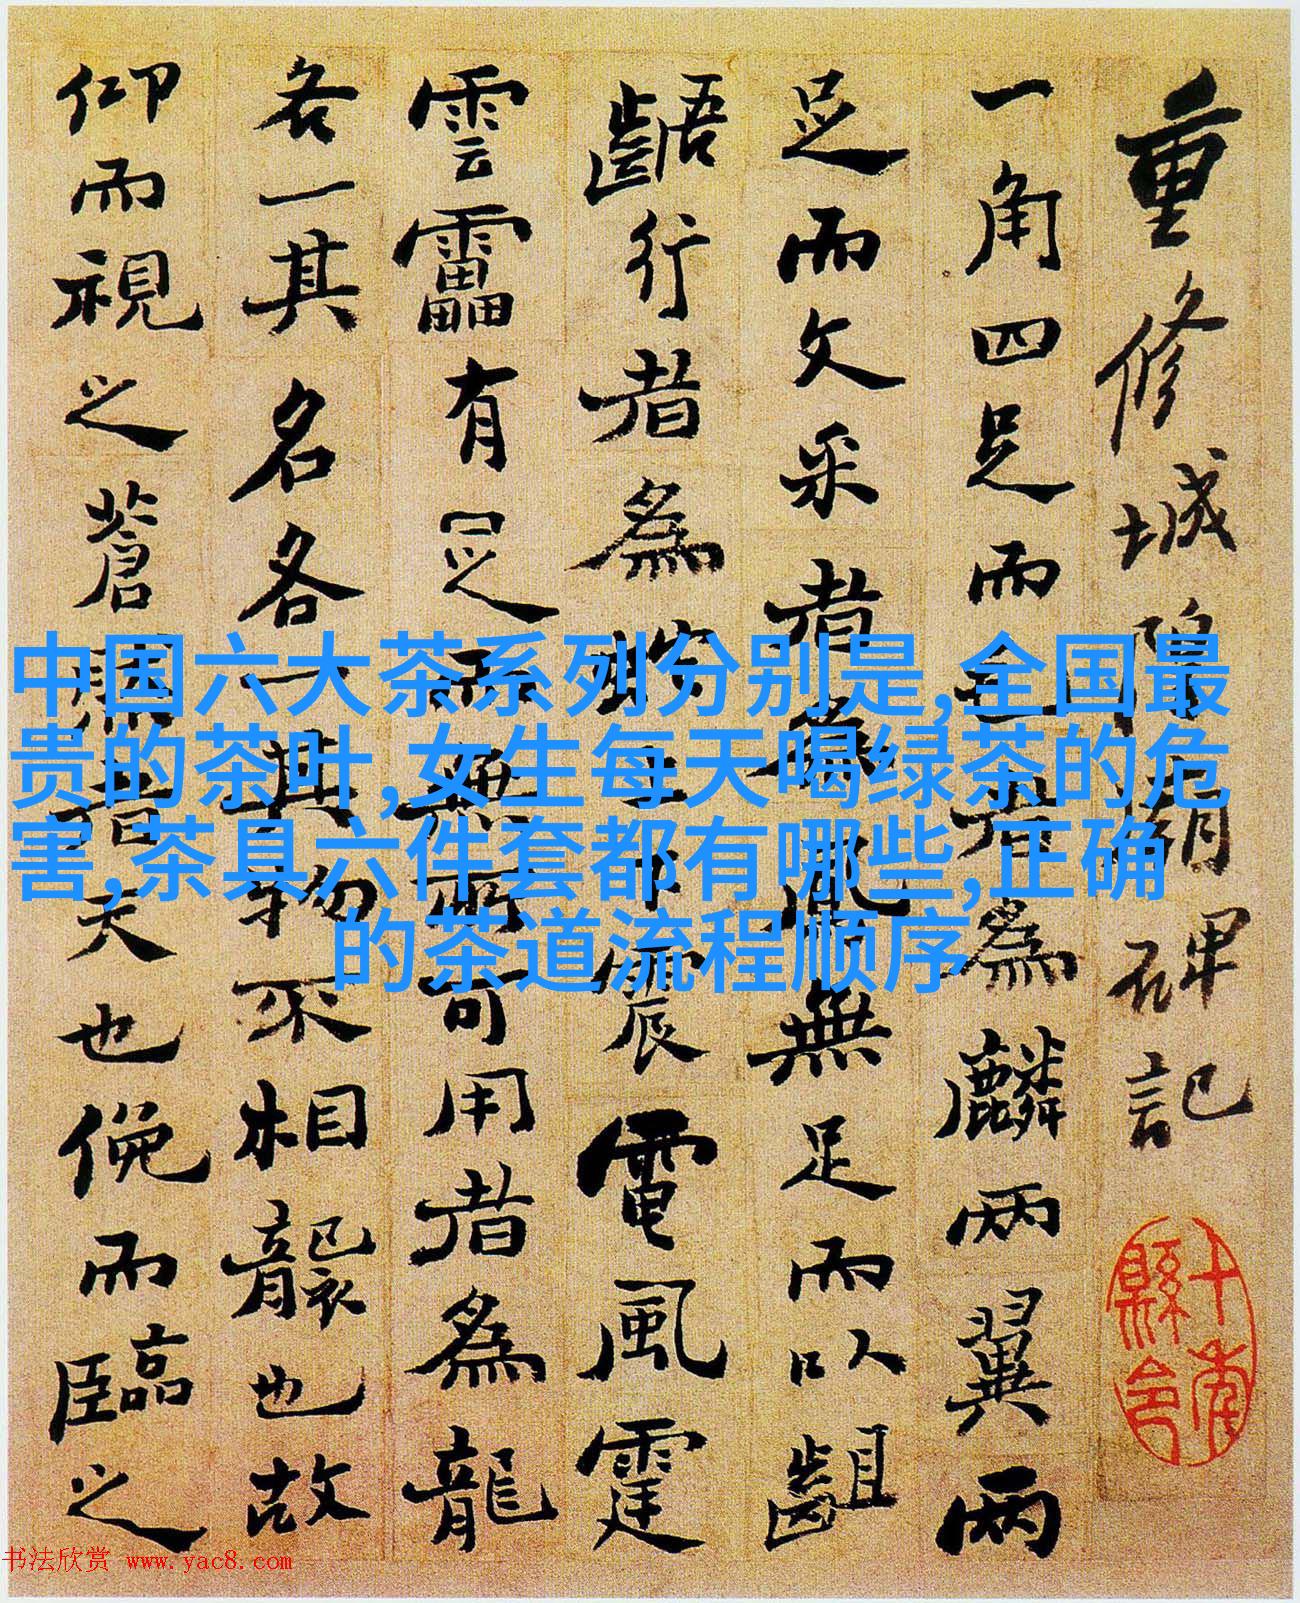 重修城隍碑記
一角四足而毛者為麟兩翼兩
足而文采者為鳳無足而以齟
齬行者為蛇上下震電風霆
雲靁有足而無所可用者為龍
各一其名各一其物不相襲也故
仰而視之蒼然者天也俛而臨之
中国六大茶系列分别是,全国最
贵的茶叶,女生每天喝绿茶的危
害,茶具六件套都有哪些,正确
的茶道流程顺序
书法欣赏 www.yac8.com